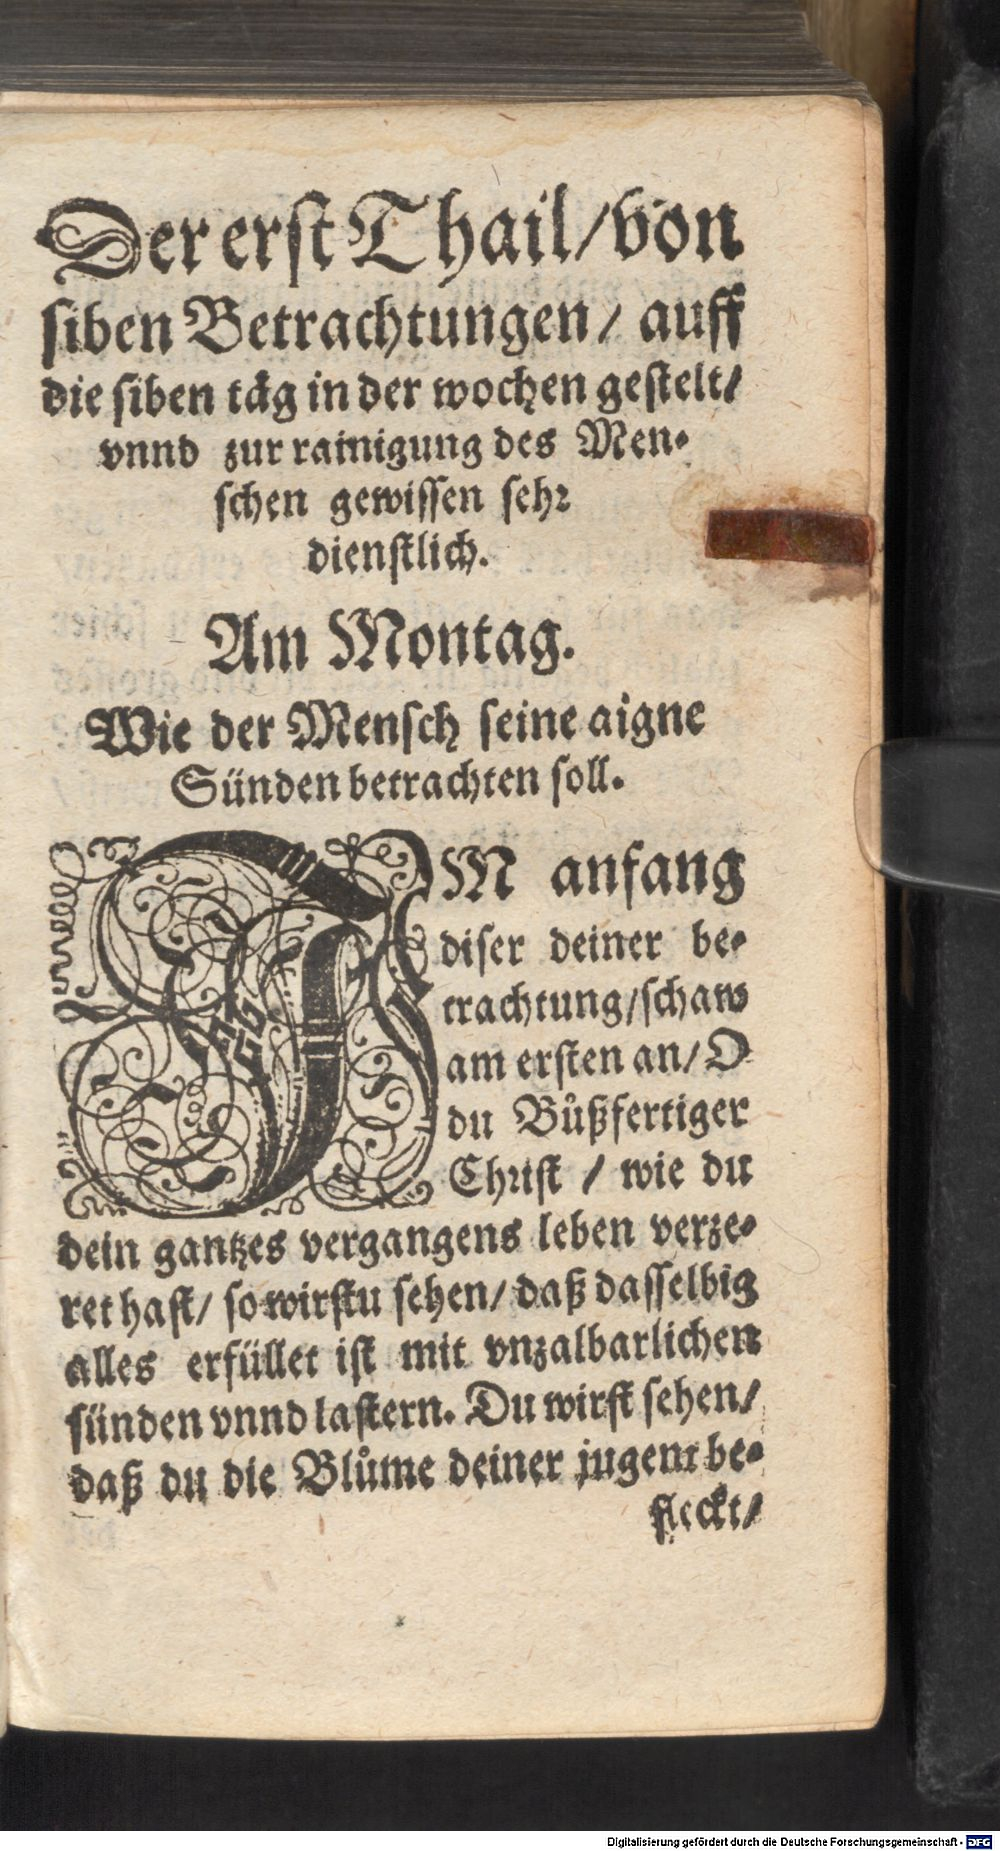 Der erst Thail/ von
siben Betrachtungen/ auff
die siben täg in der wochen gestelt/
vnnd zur rainigung des Men-
schen gewissen sehr
dienstlich.
Am Montag.
Wie der Mensch seine aigne
Sünden betrachten soll.
IM anfang
diser deiner be-
trachtung/ schaw
am ersten an/ O
du Bůßfertiger
Christ / wie du
dein gantzes vergangens leben verze-
ret hast/ so wirstu sehen/ daß dasselbig
alles erfüllet ist mit vnzalbarlichen
sünden vnnd lastern. Du wirst sehen/
daß du die Blůme deiner jugent be-
fleckt/
Digitalisierung gefördert durch die Deutsche Forschungsgemeinschaft - DFG